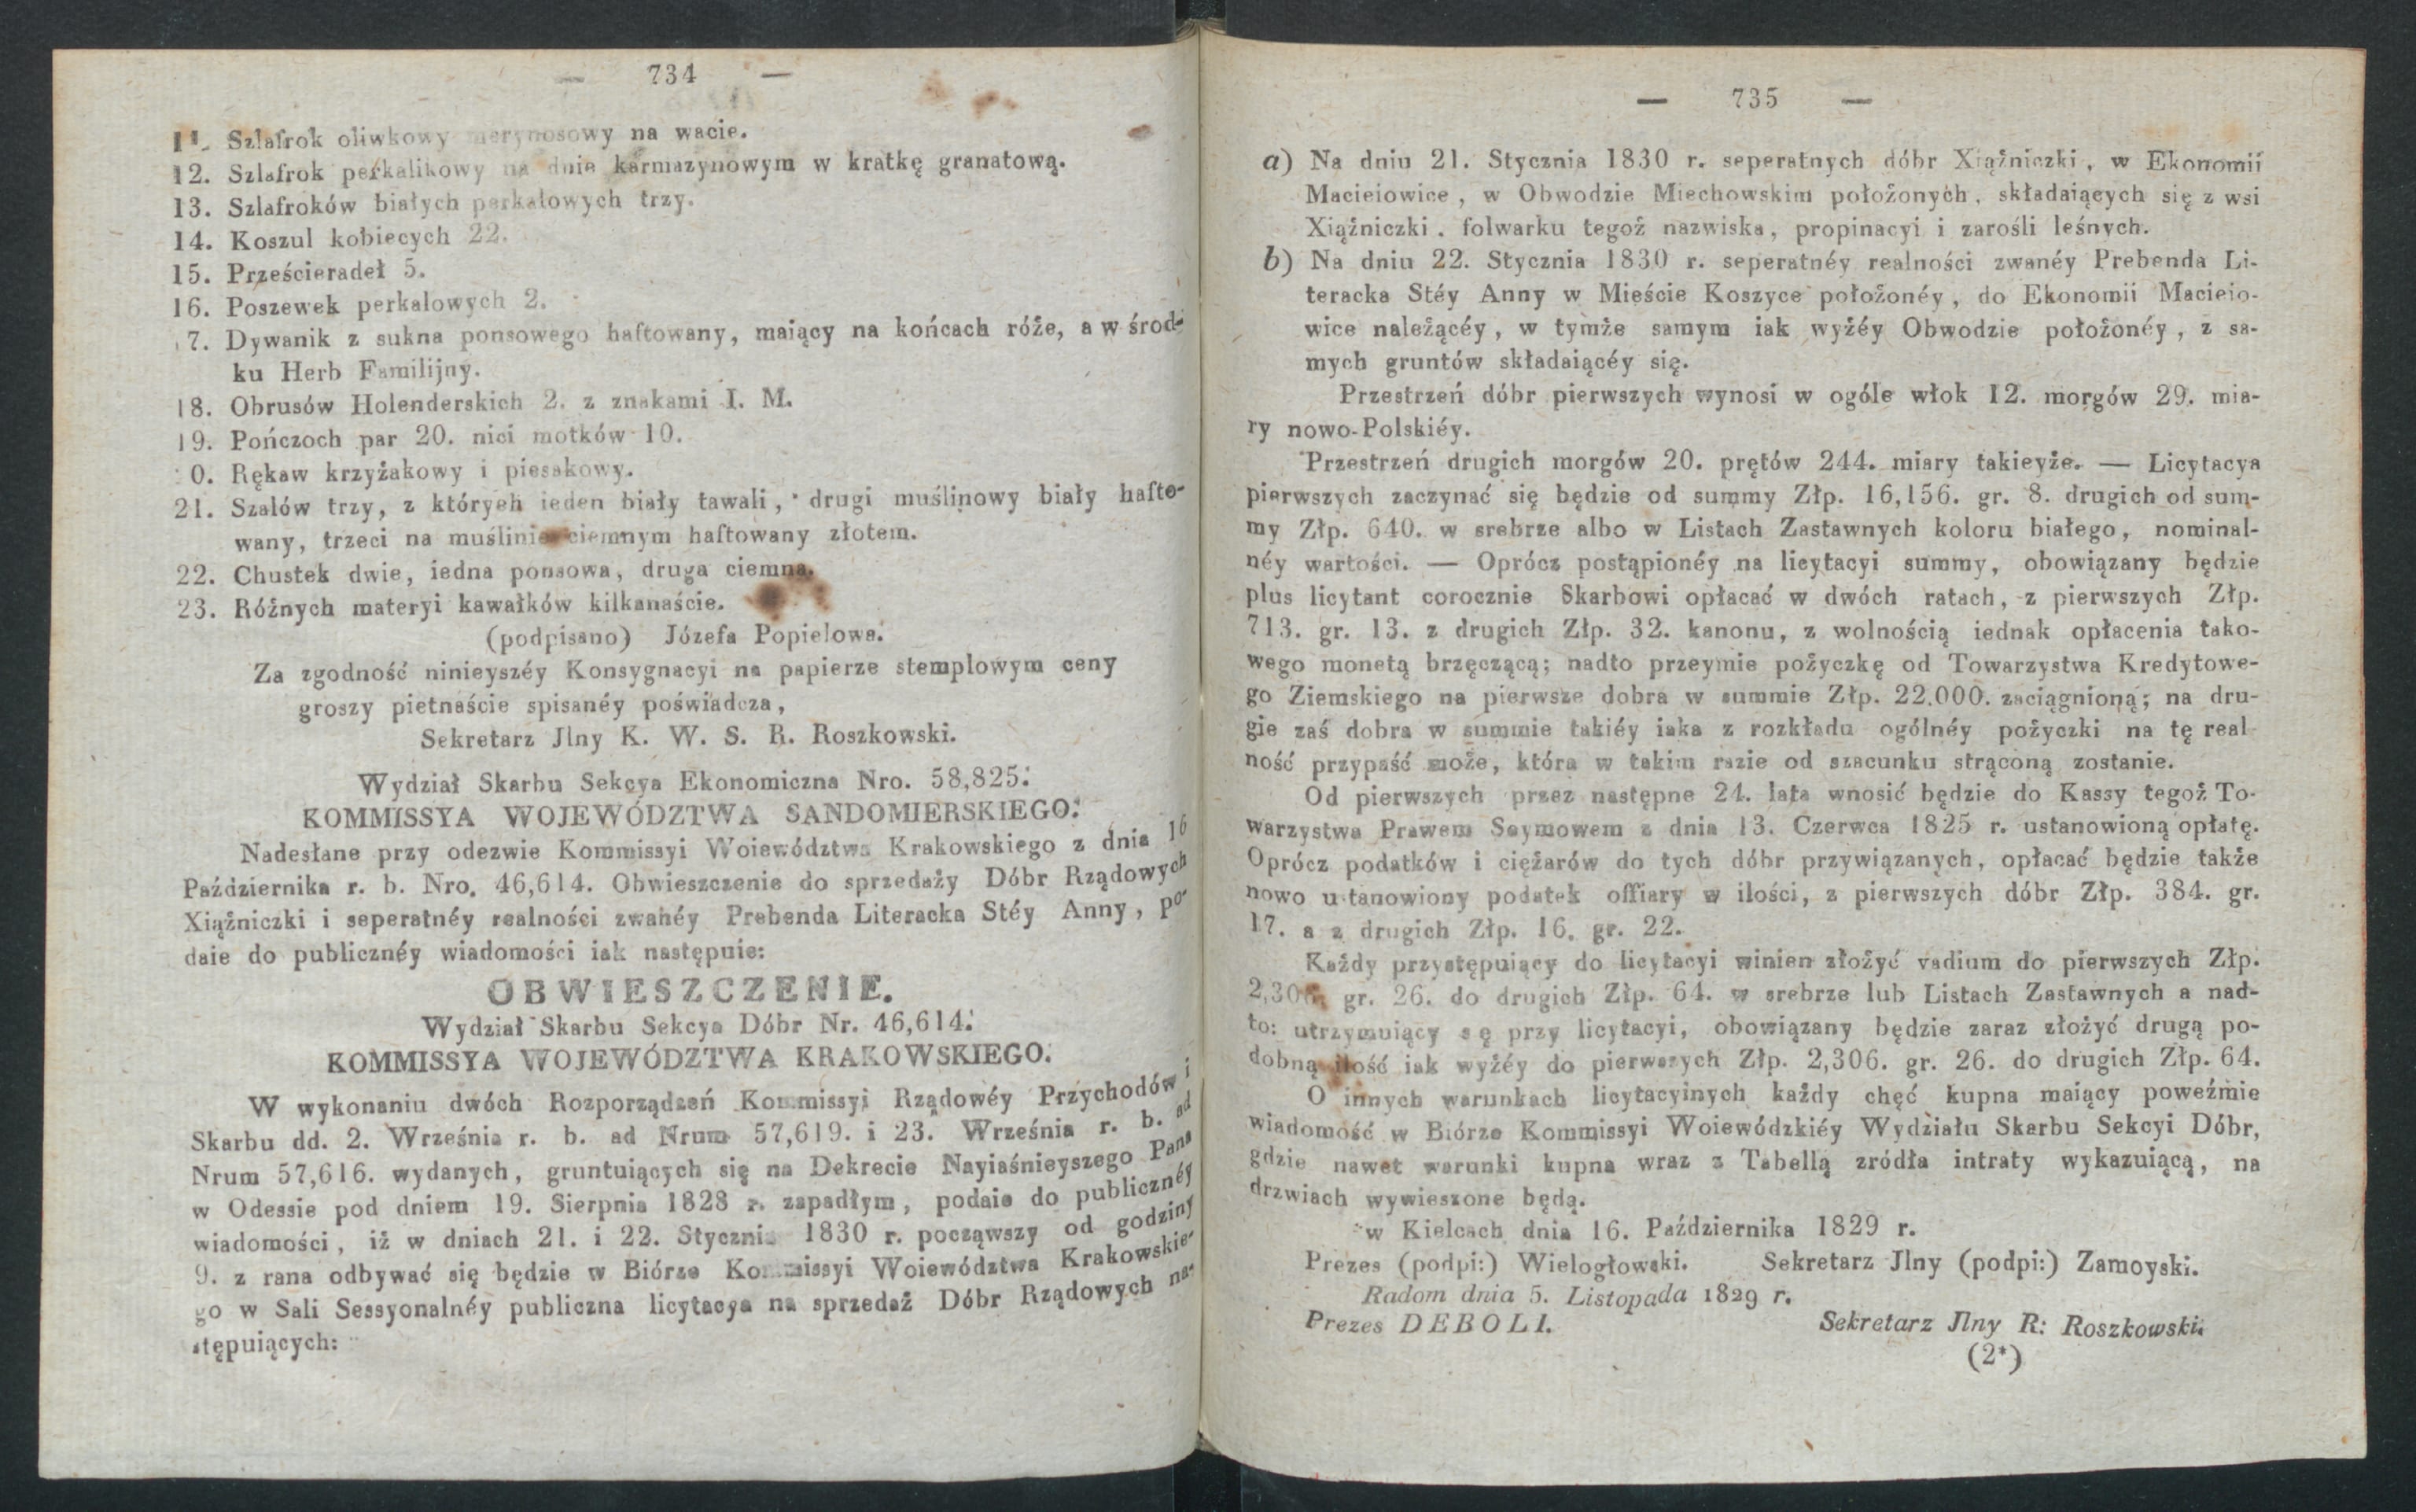 — 734 —
11. Szlafrok oliwkowy merynosowy na wacie.
12. Szlafrok perkalikowy na dnie karmazynowym w kratkę granatową.
13. Szlafroków białych perkalowych trzy.
14. Koszul kobiecych 22.
15. Prześcieradeł 5.
16. Poszewek perkalowych 2.
7. Dywanik z sukna ponsowego haftowany, maiący na końcach róże, a w środ-
ku Herb Familijny.
18. Obrusów Holenderskich 2. z znakami I. M.
19. Pończoch par 20. nici motków 10.
0. Rękaw krzyżakowy i piesakowy.
21. Szalów trzy, z których ieden biały tawali, drugi muślinowy biały hafto-
wany, trzeci na muślinie ciemnym haftowany złotem.
22. Chustek dwie, iedna ponsowa, druga ciemna.
23. Różnych materyi kawałków kilkanaście.
(podpisano) Józefa Popielowa.
Za zgodność ninieyszéy Konsygnacyi na papierze stemplowym ceny
groszy pietnaście spisanéy poświadcza,
Sekretarz Jlny K. W. S. R. Roszkowski.
Wydział Skarbu Sekcya Ekonomiczna Nro. 58,825.
KOMMISSYA WOJEWÓDZTWA SANDOMIERSKIEGO.
Nadesłane przy odezwie Kommissyi Woiewództwa Krakowskiego z dnia 16
Października r. b. Nro. 46,614. Obwieszczenie do sprzedaży Dóbr Rządowych
Xiążniczki i seperatnéy realności zwanéy Prebenda Literacka Stéy Anny, po-
daie do publicznéy wiadomości iak następuie:
OBWIESZCZENIE.
Wydział Skarbu Sekcya Dóbr Nr. 46,614.
KOMMISSYA WOJEWÓDZTWA KRAKOWSKIEGO.
W wykonaniu dwóch Rozporządzeń Kommissyi Rządowéy Przychodów i
Skarbu dd. 2. Września r. b. ad Nrum 57,619. i 23. Września r. b. ad
Nrum 57,616. wydanych, gruntuiących się na Dekrecie Nayiaśnieyszego Pana
w Odessie pod dniem 19. Sierpnia 1828 r. zapadłym, podaie do publicznéy
wiadomości, iż w dniach 21. i 22. Stycznia 1830 r. począwszy od godziny
9. z rana odbywać się będzie w Biórze Kommissyi Woiewództwa Krakowskie-
go w Sali Sessyonalnéy publiczna licytacya na sprzedaż Dóbr Rządowych na-
stępuiących:
— 735 —
a) Na dniu 21. Stycznia 1830 r. seperatnych dóbr Xiążniczki, w Ekonomii
Macieiowice, w Obwodzie Miechowskim położonych, składaiących się z wsi
Xiążniczki, folwarku tegoż nazwiska, propinacyi i zarośli leśnych.
b) Na dniu 22. Stycznia 1830 r. seperatnéy realności zwanéy Prebenda Li-
teracka Stéy Anny w Mieście Koszyce położonéy, do Ekonomii Macieio-
wice należącéy, w tymże samym iak wyżéy Obwodzie położonéy, z sa-
mych gruntów składaiącéy się.
Przestrzeń dóbr pierwszych wynosi w ogóle włok 12. morgów 29. mia-
ry nowo-Polskiéy.
Przestrzeń drugich morgów 20. prętów 244. miary takieyże. — Licytacya
pierwszych zaczynać się będzie od summy Złp. 16,156. gr. 8. drugich od sum-
my Złp. 640. w srebrze albo w Listach Zastawnych koloru białego, nominal-
néy wartości. — Oprócz postąpionéy na licytacyi summy, obowiązany będzie
plus licytant corocznie Skarbowi opłacać w dwóch ratach, z pierwszych Złp.
713. gr. 13. z drugich Złp. 32. kanonu, z wolnością iednak opłacenia tako-
wego monetą brzęczącą; nadto przeymie pożyczkę od Towarzystwa Kredytowe-
go Ziemskiego na pierwsze dobra w summie Złp. 22,000. zaciągnioną; na dru-
gie zaś dobra w summie takiéy iaka z rozkładu ogólnéy pożyczki na tę real
ność przypaść może, która w takim razie od szacunku strąconą zostanie.
Od pierwszych przez następne 24. lata wnosić będzie do Kassy tegoż To-
warzystwa Prawem Seymowem z dnia 13. Czerwca 1825 r. ustanowioną opłatę.
Oprócz podatków i ciężarów do tych dóbr przywiązanych, opłacać będzie także
nowo ustanowiony podatek offiary w ilości, z pierwszych dóbr Złp. 384. gr.
17. a z drugich Złp. 16. gr. 22.
Każdy przystępuiący do licytacyi winien złożyć vadium do pierwszych Złp.
2,306. gr. 26. do drugich Złp. 64. w srebrze lub Listach Zastawnych a nad-
to: utrzymuiący się przy licytacyi, obowiązany będzie zaraz złożyć drugą po-
dobną ilość iak wyżéy do pierwszych Złp. 2,306. gr. 26. do drugich Złp. 64.
O innych warunkach licytacyinych każdy chęć kupna maiący poweźmie
wiadomość w Biórze Kommissyi Woiewódzkiéy Wydziału Skarbu Sekcyi Dóbr,
gdzie nawet warunki kupna wraz z Tabellą zródła intraty wykazuiącą, na
drzwiach wywieszone będą.
w Kielcach dnia 16. Października 1829 r.
Prezes (podpi:) Wielogłowski. Sekretarz Jlny (podpi:) Zamoyski.
Radom dnia 5. Listopada 1829 r.
Prezes DEBOLI. Sekretarz Jlny R: Roszkowski.
(2*)